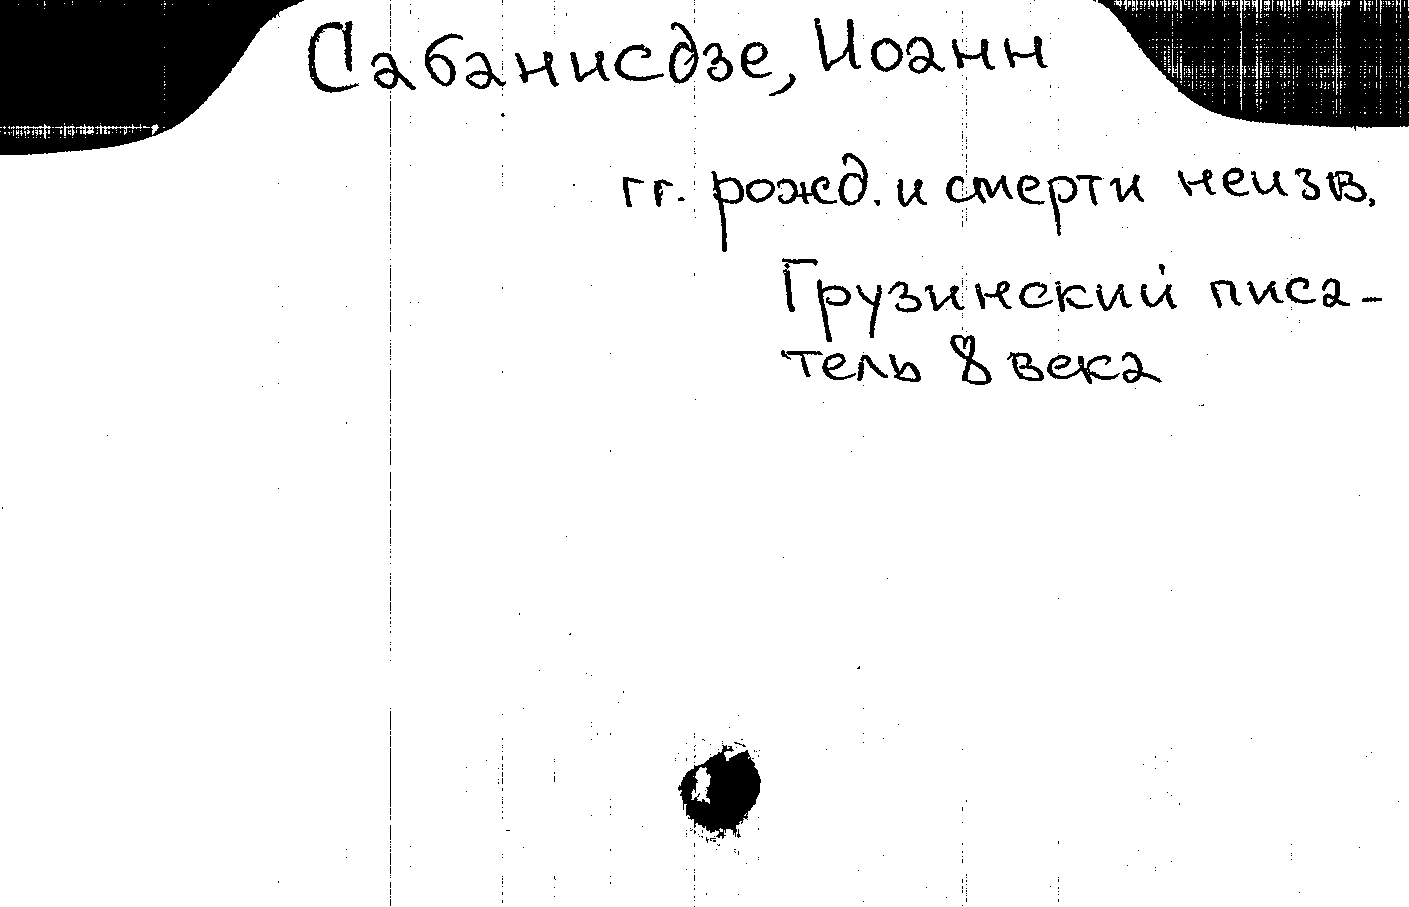 Сабанисдзе, Иоанн
гг. рожд. и смерти неизв.
Грузинский писа-
тель 8 века